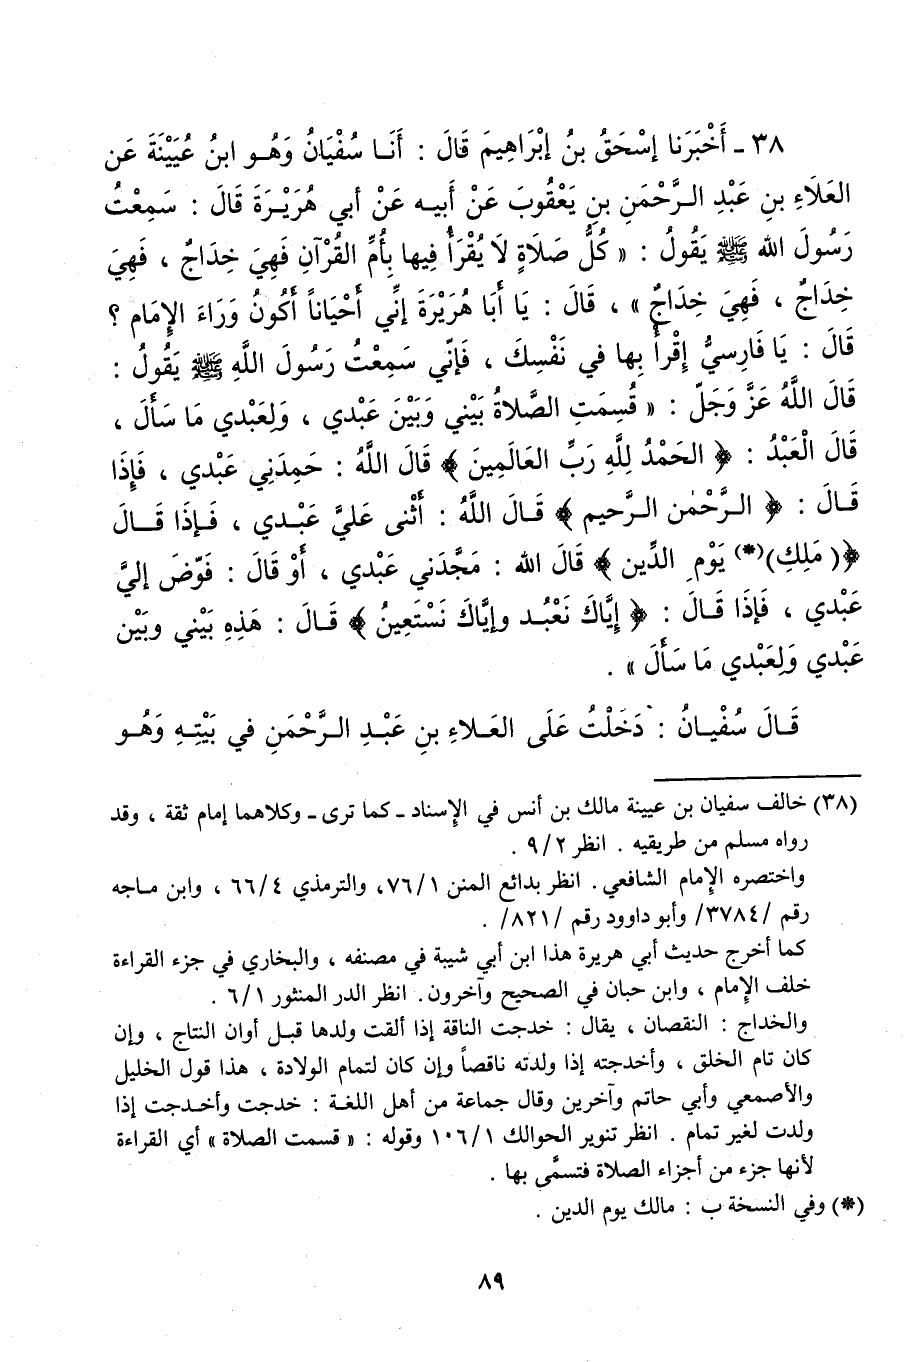 ٣٨ ـ أَخْبَرَنا إسْحَقُ بنُ إبْرَاهِيمَ قَالَ : أَنَـا سُفْيَانُ وَهُـو ابنُ عُيَيْنَةَ عَن
العَلَاءِ بنِ عَبْدِ الـرَّحْمَنِ بنِ يَعْقُوبَ عَنْ أَبيـه عَنْ أبي هُرَيْـرَةَ قَالَ : سَمِعْتُ
رَسُولَ الله ﷺ يَقُولُ : « كُلُّ صَلَاةٍ لَا يُقْرَأُ فِيها بِأُمِّ القُرْآنِ فَهِيَ خِدَاجٌ ، فَهِيَ
خِدَاجٌ ، فَهِيَ خِدَاجٌ » ، قَالَ : يَا أَبَا هُرَيْرَةَ إنِّي أَحْيَاناً أَكُونُ وَرَاءَ الإِمَامِ ؟
قَالَ : يَا فَارِسيُّ إِقْرأْ بِها في نَفْسِكَ ، فَإنّي سَمِعْتُ رَسُولَ اللَّهِ ﷺ يَقُولُ :
قَالَ اللَّهُ عَزَّ وَجَلّ : « قُسِمَتِ الصَّلاةُ بَيْني وَبَيْنَ عَبْدي ، وَلِعَبْدي مَا سَأَلَ ،
قَالَ الْعَبْدُ : ﴿ الحَمْدُ لِلَّهِ رَبِّ العَالَمِينَ ﴾ قَالَ اللَّهُ : حَمِدَني عَبْدي ، فَإِذَا
قَـالَ : ﴿ الـرَّحْمٰن الرَّحيم ﴾ قَـالَ اللَّهُ : أَثْنى عَلَيَّ عَبْـدي ، فَـإذَا قَـالَ
﴿( مَلِكِ)(*) يَوْمِ الدِّين ﴾ قَالَ الله : مَجَّدَني عَبْدي ، أَوْ قَالَ : فَوّضَ إليَّ
عَبْدي ، فَإذَا قَـالَ : ﴿ إيَّاكَ نَعْبُـد وإيَّاكَ نَسْتَعِينُ ﴾ قَـالَ : هَذِهِ بَيْني وبَيْن
عَبْدي وَلِعَبْدي مَا سَأَلَ » .
قَـالَ سُفْيـانُ : دَخَلْتُ عَلَى العَـلاءِ بنِ عَبْـدِ الـرَّحْمَنِ في بَيْتِـهِ وَهُـو
(٣٨) خالف سفيان بن عيينة مالك بن أنس في الإسناد ـ كما ترى ـ وكلاهما إمام ثقة ، وقد
رواه مسلم من طريقيه . انظر ٩/٢ .
واختصره الإمام الشافعي . انظر بدائع المنن ٧٦/١، والترمذي ٦٦/٤ ، وابن مـاجه
رقم /٣٧٨٤/ وأبو داوود رقم /٨٢١/ .
كما أخرج حديث أبي هريرة هذا ابن أبي شيبة في مصنفه ، والبخاري في جزء القراءة
خلف الإمام ، وابن حبان في الصحيح وآخرون. انظر الدر المنثور ٦/١ .
والخداج : النقصان ، يقال : خدجت الناقة إذا ألقت ولدها قبـل أوان النتاج ، وإن
كان تام الخلق ، وأخدجته إذا ولدته ناقصاً وإن كان لتمام الولادة ، هذا قول الخليل
والأصمعي وأبي حاتم وآخرين وقال جماعة من أهل اللغـة : خدجت وأخـدجت إذا
ولدت لغير تمام . انظر تنوير الحوالك ١٠٦/١ وقوله : « قسمت الصلاة » أي القراءة
لأنها جزء من أجزاء الصلاة فتسمَّى بها .
(*) وفي النسخة ب : مالك يوم الدين .
٨٩